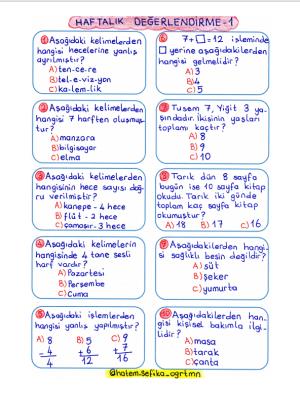 HAFTALIK DEĞERLENDİRME-1
1 Aşağıdaki kelimelerden
hangisi hecelerine yanlış
ayrılmıştır?
A) ten-ce-re
B) tel-e-viz-yon
C) ka-lem-lik
2 Aşağıdaki kelimelerden
hangisi 7 harften oluşmuş-
tur?
A) manzara
B) bilgisayar
C) elma
3 Aşağıdaki kelimelerden
hangisinin hece sayısı doğ-
ru verilmiştir?
A) kanepe - 4 hece
B) flüt - 2 hece
C) çamaşır- 3 hece
4 Aşağıdaki kelimelerin
hangisinde 4 tane sesli
harf vardır?
A) Pazartesi
B) Perşembe
C) Cuma
5 Aşağıdaki işlemlerden
hangisi yanlış yapılmıştır?
A) 8 B) 5 C) 9
- 4 + 6 + 7
4 12 16
6 7+□=12 işleminde
□ yerine aşağıdakilerden
hangisi gelmelidir?
A) 3
B) 4
C) 5
7 Tusem 7, Yiğit 3 ya-
şındadır. İkisinin yaşları
toplamı kaçtır?
A) 8
B) 9
C) 10
8 Tarık dün 8 sayfa
bugün ise 10 sayfa kitap
okudu. Tarık iki günde
toplam kaç sayfa kitap
okumuştur?
A) 18 B) 17 C) 16
9 Aşağıdakilerden hangi-
si sağlıklı besin değildir?
A) süt
B) şeker
C) yumurta
10 Aşağıdakilerden han-
gisi kişisel bakımla ilgi-
lidir?
A) masa
B) tarak
C) çanta
@hatem.sefika_ogrtmn